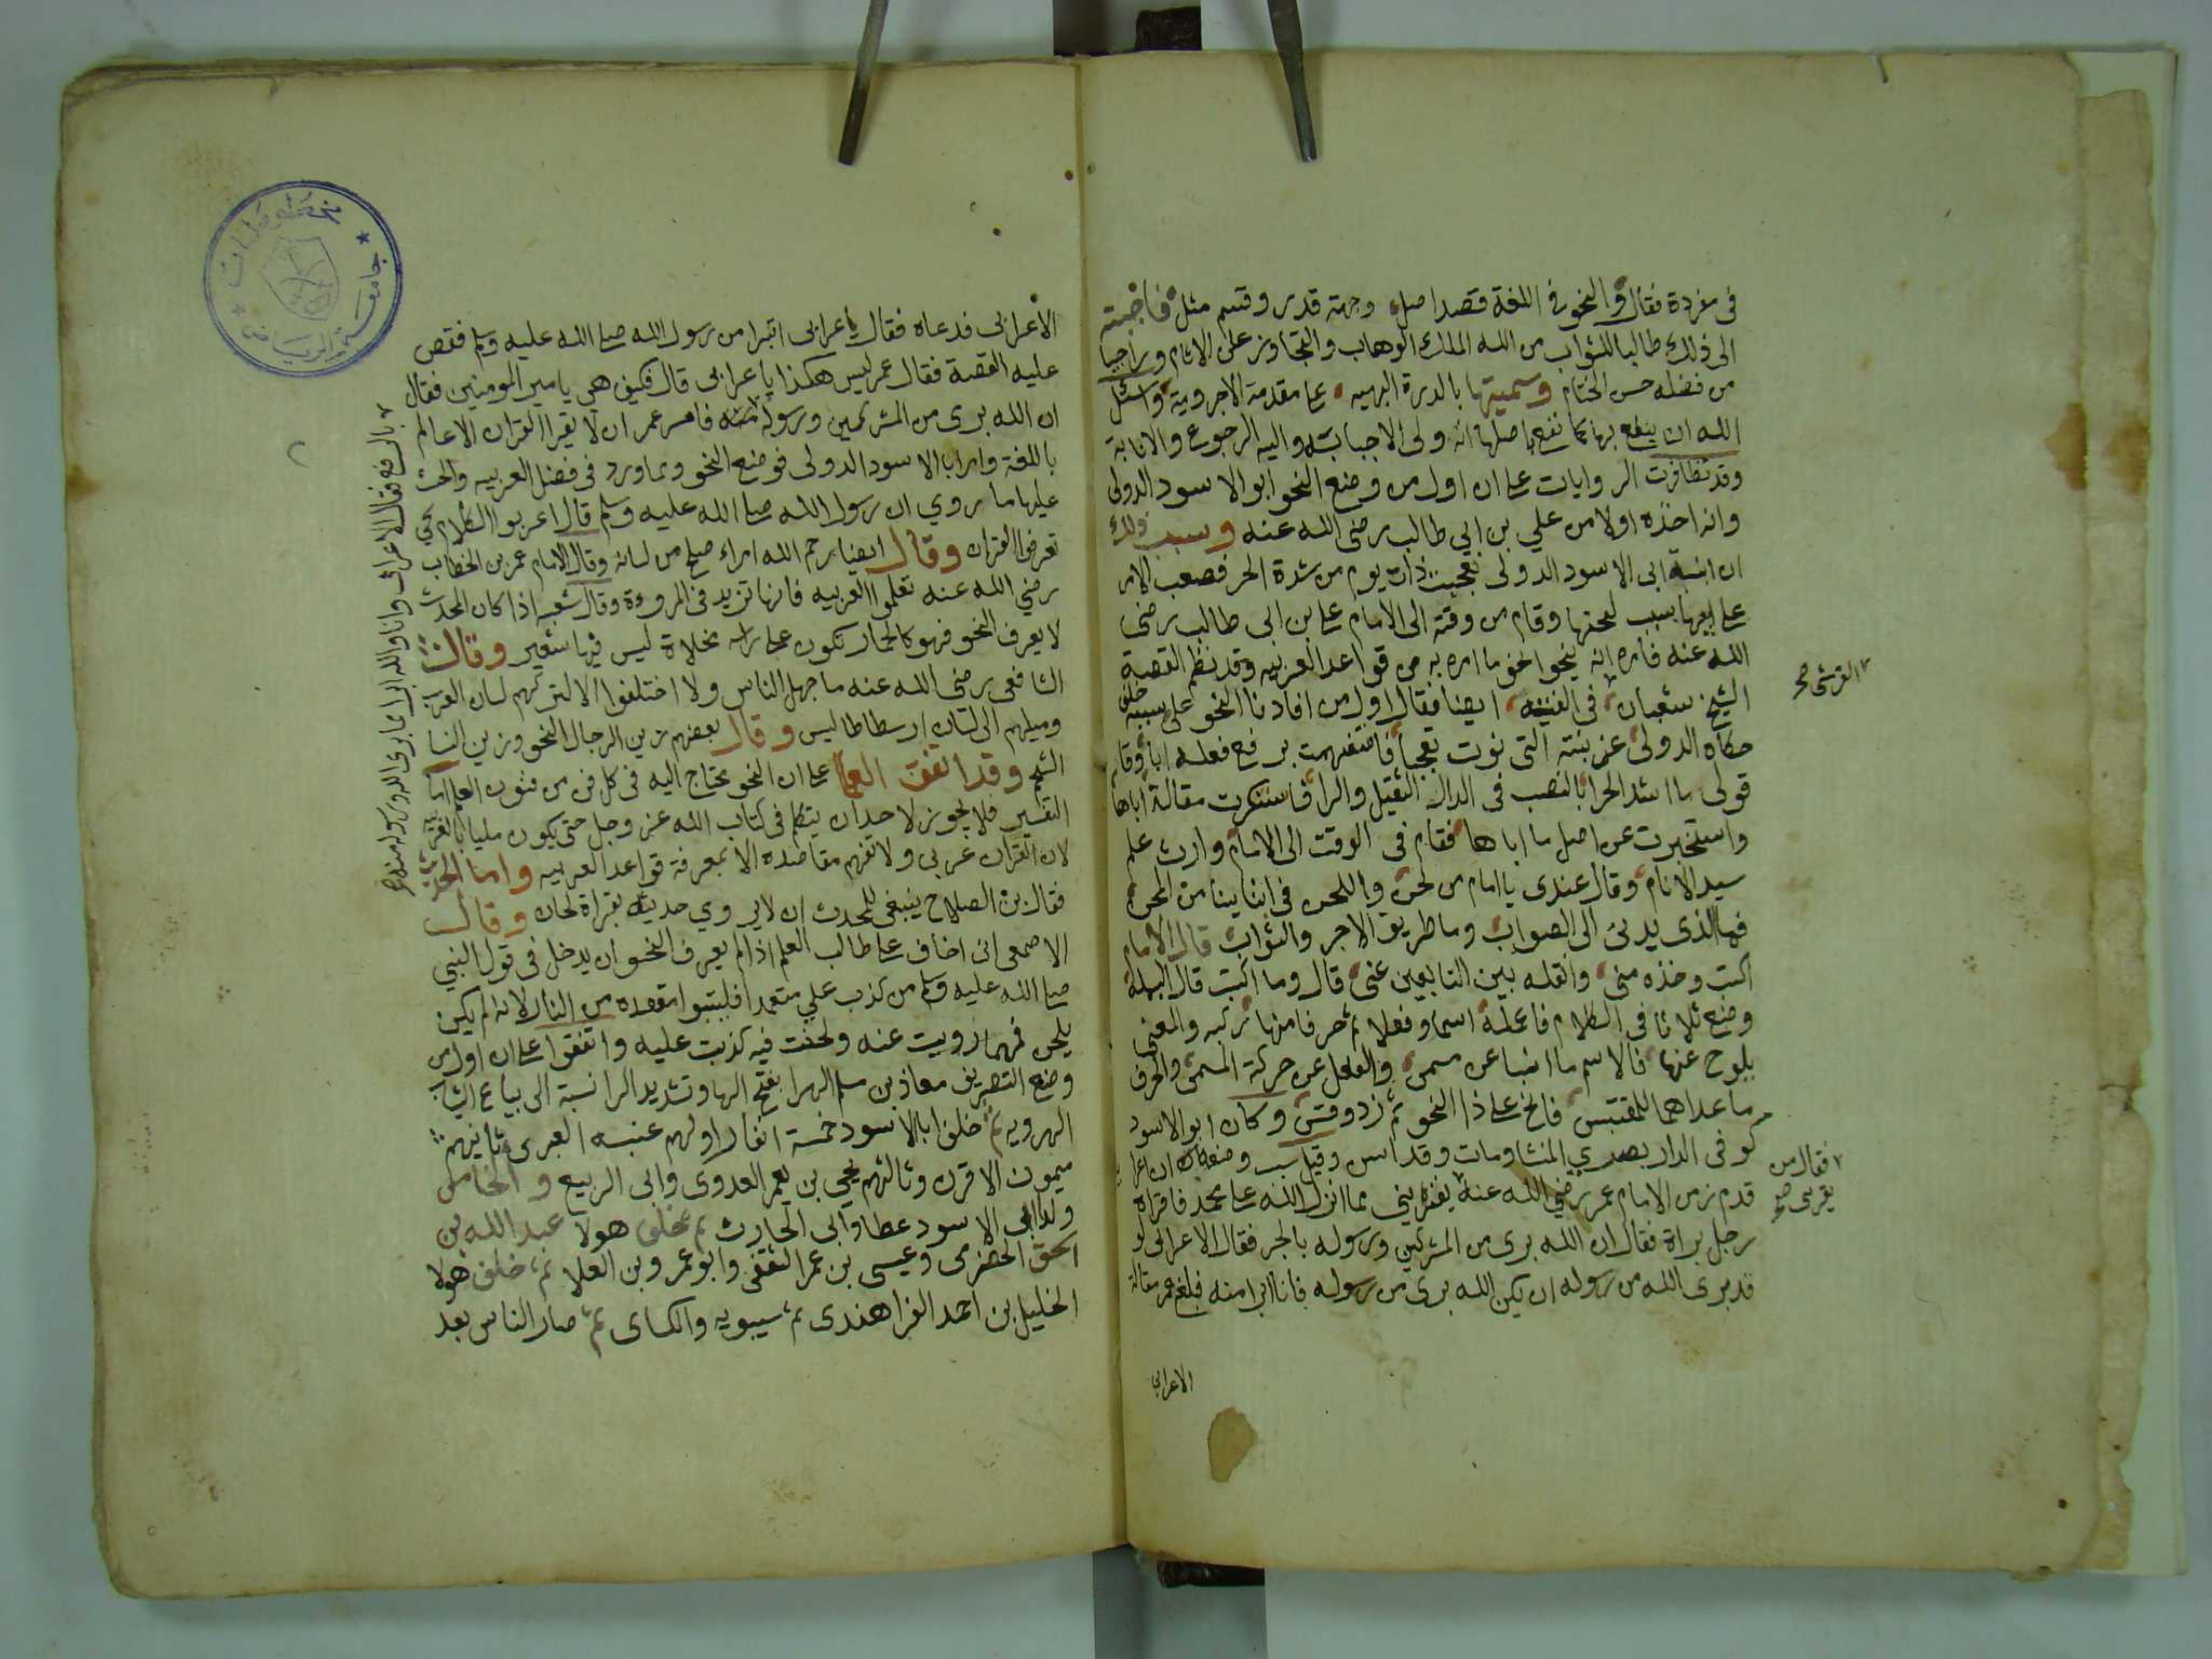 فى مفردة فقال والنحو فى اللغة قصد اصل وجهة قدر وقسم مثل فاجبته
الى ذلك طالبا للثواب من الله الملك الوهاب والتجاوز على الاثام وراجيا
من فضله حسن الختام وسميتها بالدرة البهيه على مقدمة الاجرومية واسئل
الله ان ينفع بها كما نفع باصلها انه ولى الاجبابة واليه الرجوع والانابة
وقد تظافرت الروايات على ان اول من وضع النحو ابو الاسود الدولى
وانه اخذه اولا من علي بن ابي طالب رضى الله عنه وسبب ذلك
ان ابنة ابى الاسود الدولى تعجبت ذات يوم من شدة الحر فصعب الامر
على ابيها بسبب لحنها وقام من وقته الى الامام على بن ابى طالب رضى
الله عنه فامره انه ينحو لحنو ما امره به من قواعد العربيه وقد نظم القصة
الشيخ شعبان فى الفيته ايضا فقال اول من افادنا النحو على سببه خلق
القرشى صح
حكاه الدولى عن بنته التى نوت تعجبا فاستفهمت برفع فعله ابا وقام
قولى ما اشد الحر بالنصب فى الدال الثقيل والرا فاستنكرت مقالة اباها
واستخبرت عن اصل ما اباها فقام فى الوقت الى الامام وارث علم
سيد الانام وقال عندى يا امام من لحن واللحن فى ابنايينا من المحن
فما الذى يدنى الى الصواب وما طريق الاجر والثواب قال الامام
اكتب وخذه منى وانقله بين التابعين عنى قال وما اكتب قال البسملة
وضع ثلاثا فى الكلام فاعلة اسما وفعلا ثم حرفا منها تركبه والمعنى
يلوح عنها فالاسم ما انبا عن مسمى والفعل عن حركة المسمى والحرف
ما عداهما للمقتبس فانح على ذا النحو ثم زد وقس وكان ابو الاسود
كوفى الدار بصري المنشا ومات وقد اسن وقيل سبب وضعه ان اعرابيا
قدم زمن الامام عمر رضي الله عنه يقرئني مما انزل الله على محمد فاقراه
فقال من
يقرئنى صح
رجل براة فقال ان الله برى من المشركين ورسوله بالجر فقال الاعرابى او
قد برى الله من رسوله ان يكن الله برى من رسوله فانا ابرا منه فبلغ عمر مقالة
الاعرابي
الاعرابى فدعاه فقال يا عرابى اتبرا من رسول الله صلى الله عليه وسلم فقص
عليه القصة فقال عمر ليس هكذا يا عرابى قال فكيف هي يا مير المومنين فقال
ان الله برى من المشركين ورسوله فامر عمر ان لا يقرا القران الا عالم
بالرفع فقال الاعرابى وانا والله ابرا مما برى الله ورسوله منه صح
باللغة وامر ابا الاسود الدولى فوضع النحو ومما ورد فى فضل العربيه والحث
عليها ما روي ان رسول الله صلى الله عليه وسلم قال اعربوا الكلام كي
تعرفوا القران وقال ايضا رحم الله امراء صلح من لسانه وقال الامام عمر بن الخطاب
رضي الله عنه تعلموا العربيه فانها تزيد فى المروءة وقال شعبه اذا كان المحدث
لا يعرف النحو فهو كالحمار تكون على راسه مخلاة ليس فيها شعير وقال
الشافعى رضى الله عنه ما جهل الناس ولا اختلفوا الا لتركهم لسان العرب
وميلهم الى لسان ارسطاطاليس وقال بعضهم زين الرجال النحو وزين النسا
الشحم وقد اتفق العلما على ان النحو يحتاج اليه فى كل فن من فنون العلم اما
التفسير فلا يجوز لاحد ان يتكلم فى كتاب الله عز وجل حتى يكون مليا بالعربيه
لان القران عربى ولا تفهم مقاصده الا بمعرفة قواعد العربيه واما الحديث
فقال بن الصلاح ينبغى للمحدث ان لا يروي حديثه بقراة لحان وقال
الاصمعى انى اخاف على طالب العلم اذا لم يعرف النحو ان يدخل فى قول النبي
صلى الله عليه وسلم من كذب علي متعمدا فليتبوا مقعده من النار لانه لم يكن
يلحن فمهما رويت عنه ولحنت فيه كذبت عليه واتفقوا على ان اول من
وضع التصريف معاذ بن مسلم الهرا بفتح الها وتشديد الرا نسبة الى بياع الثياب
الهرويه ثم خلف ابا الاسود خمسة انفار اولهم عنبسه العبرى ثانيهم
ميمون الاقرن وثالثهم يحيى بن يعمر العدوى وابى الربيع والخامس
ولد ابى الاسود عطا وابى الحارث ثم خلف هولا عبد الله بن
اسحق الحضرمى وعيسى بن عمر الثقفى وابو عمرو بن العلا ثم خلف هولا
الخليل بن احمد الفراهندى ثم سيبويه والكساى ثم صار الناس بعد
مخطوطات
جامعة الرياض